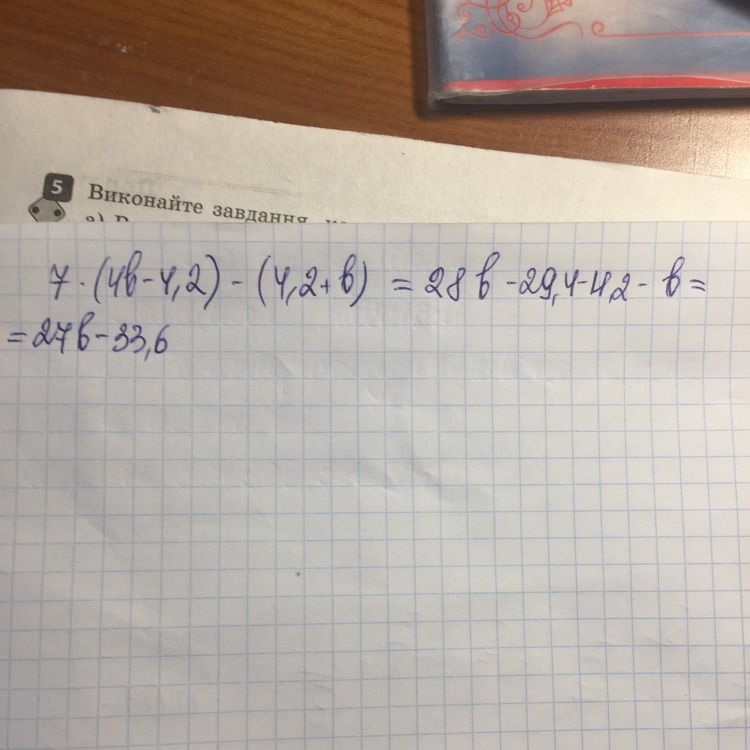 5 Виконайте завдання
7 · (4b - 4,2) - (4,2 + b) = 28b - 29,4 - 4,2 - b =
= 27b - 33,6